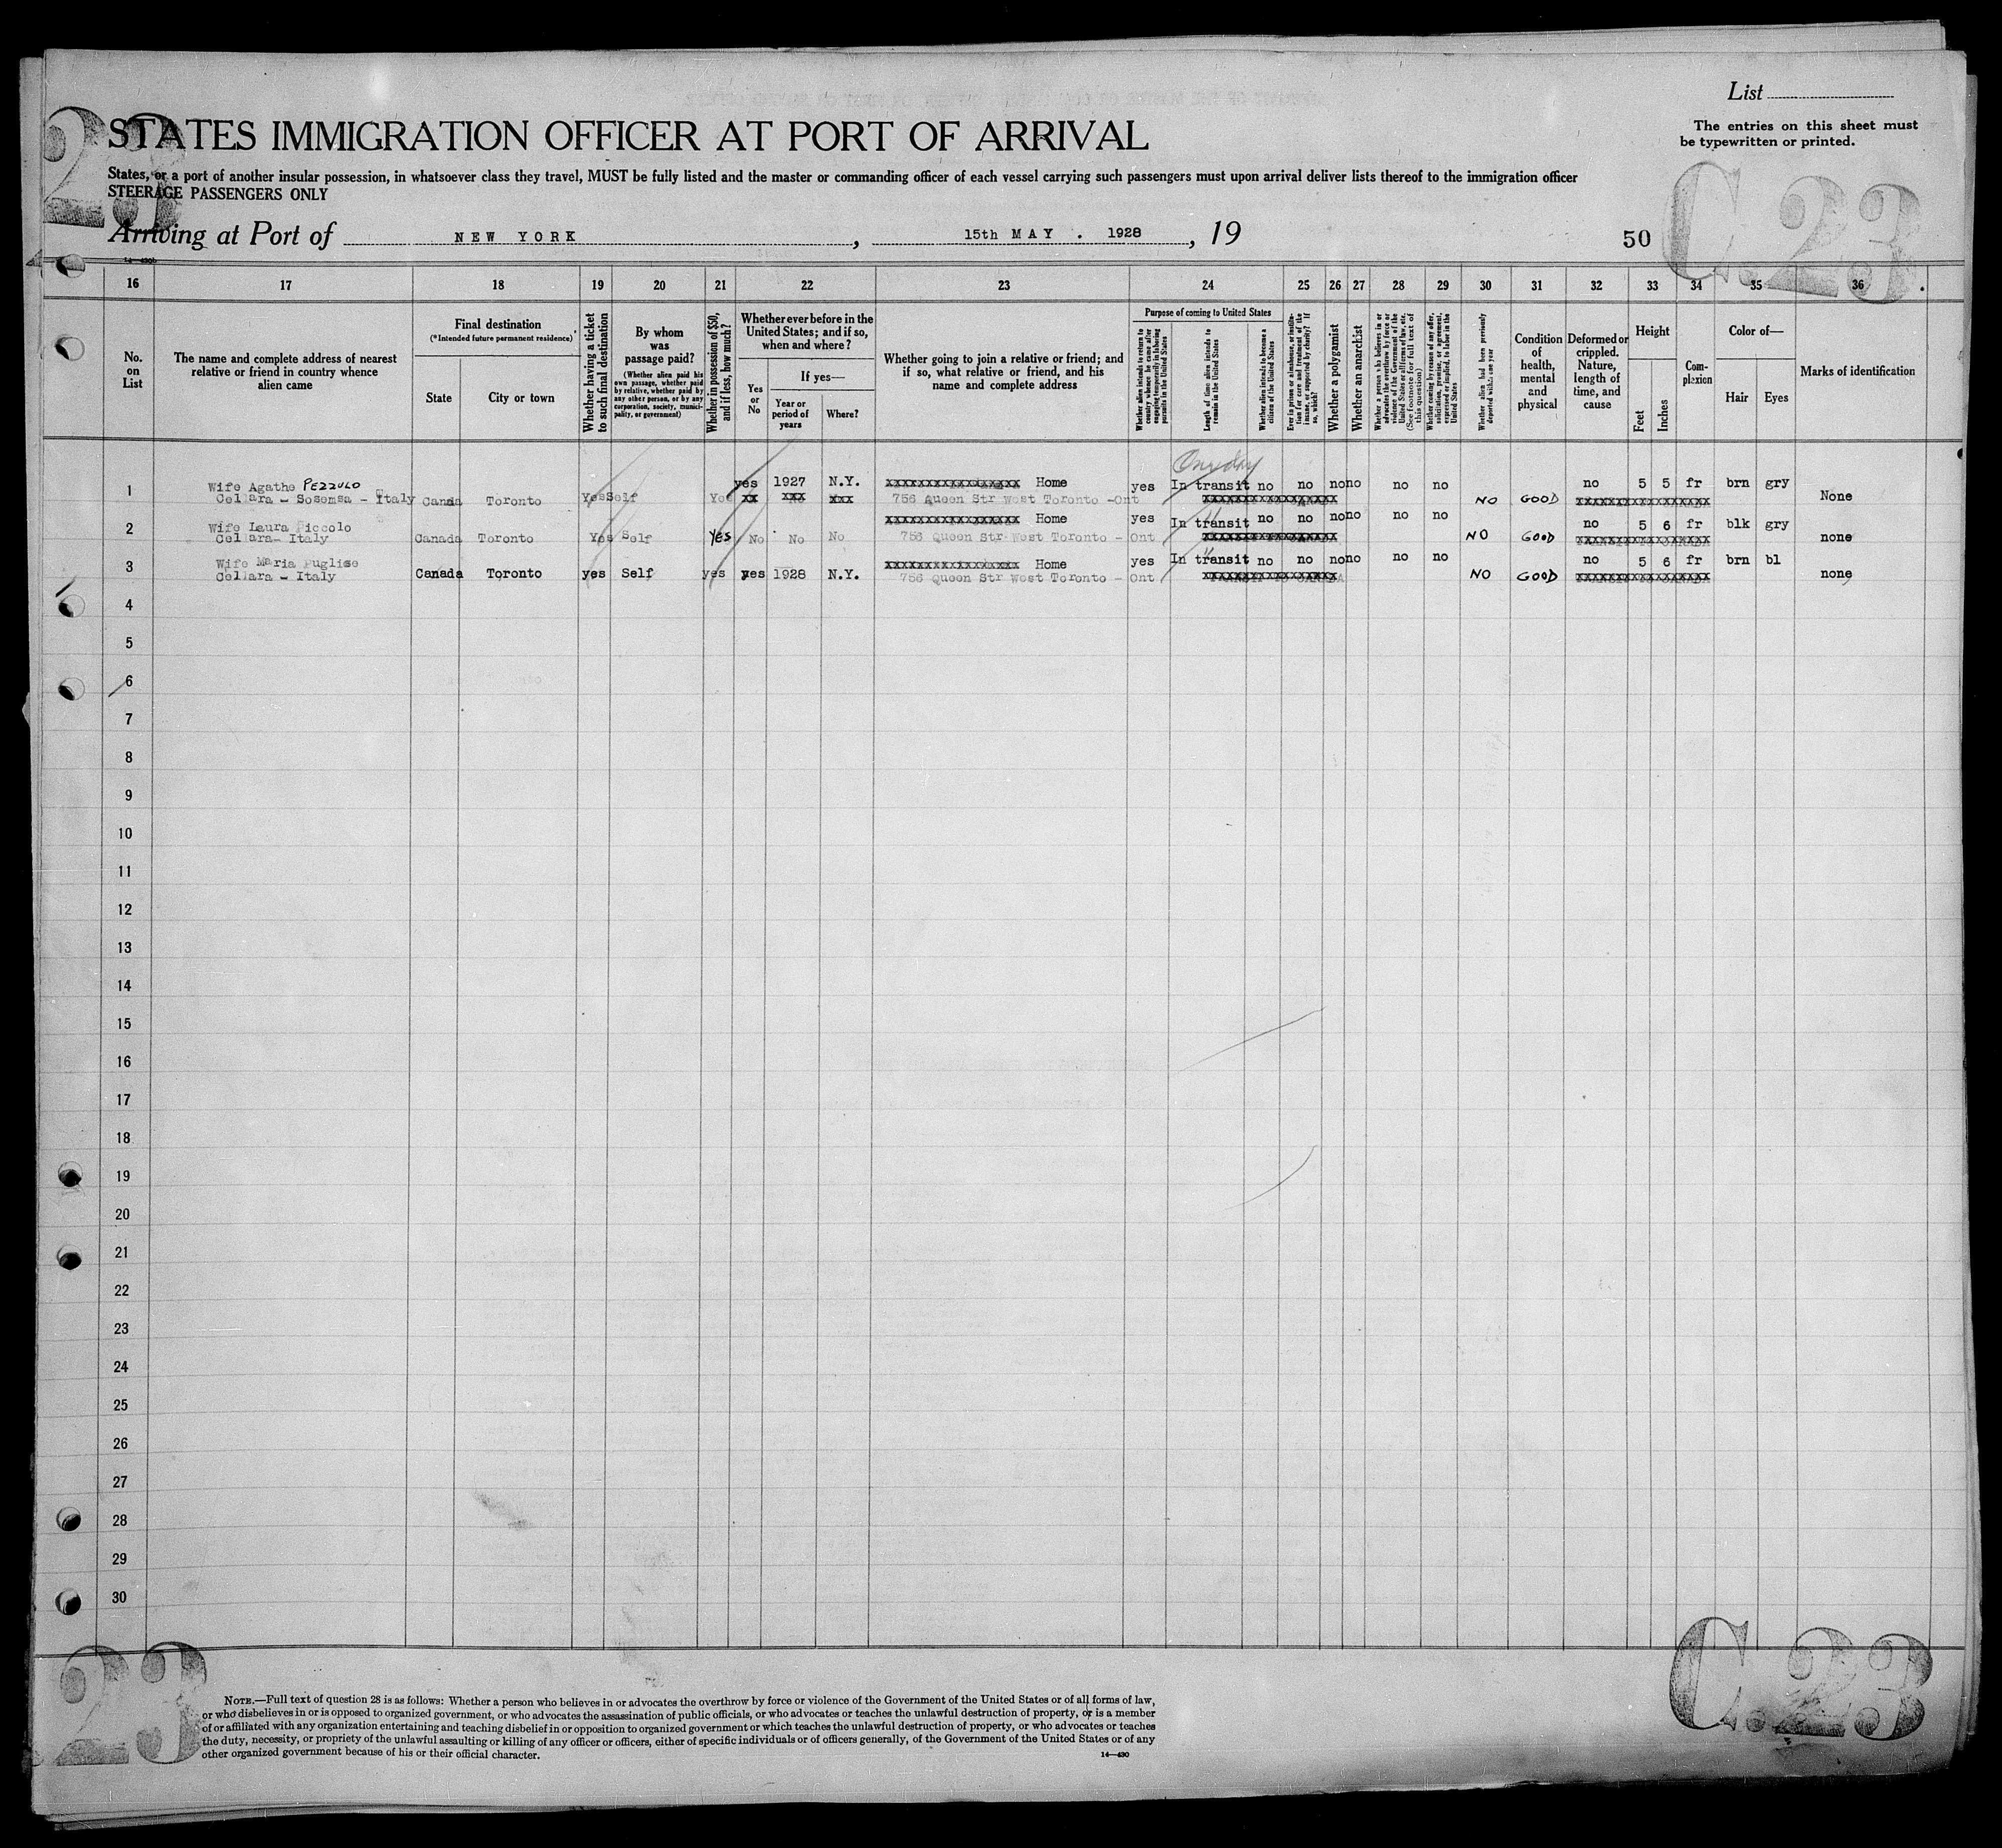 List
The entries on this sheet must
be typewritten or printed.
STATES IMMIGRATION OFFICER AT PORT OF ARRIVAL
States, or a port of another insular possession, in whatsoever class they travel, MUST be fully listed and the master or commanding officer of each vessel carrying such passengers must upon arrival deliver lists thereof to the immigration officer
STEERAGE PASSENGERS ONLY
23
C.23
Arriving at Port of NEW YORK , 15th MAY . 1928 , 19
50
16 17 18 19 20 21 22 23 24 25 26 27 28 29 30 31 32 33 34 35 36
No. on List
The name and complete address of nearest
relative or friend in country whence
alien came
Final destination
(*Intended future permanent residence)
State
City or town
Whether having a ticket
to such final destination
By whom
was
passage paid?
(Whether alien paid his
own passage, whether paid
by relative, whether paid by
any other person, or by any
corporation, society, munici-
pality, or government)
Whether in possession of $50,
and if less, how much?
Whether ever before in the
United States; and if so,
when and where?
Yes
or
No
If yes—
Year or
period of
years
Where?
Whether going to join a relative or friend; and
if so, what relative or friend, and his
name and complete address
Purpose of coming to United States
Whether alien intends to return to
country whence he came after
engaging temporarily in laboring
pursuits in the United States
Length of time alien intends to
remain in the United States
Whether alien intends to become a
citizen of the United States
Ever in prison or almshouse, or institu-
tion for care and treatment of the
insane, or supported by charity? If
so, which?
Whether a polygamist
Whether an anarchist
Whether a person who believes in or
advocates the overthrow by force or
violence of the Government of the
United States or all forms of law, etc.
(See footnote for full text of
this question)
Whether coming by reason of any offer,
solicitation, promise, or agreement,
expressed or implied, to labor in the
United States
Whether alien had been previously
deported within one year
Condition
of
health,
mental
and
physical
Deformed or
crippled.
Nature,
length of
time, and
cause
Height
Feet
Inches
Com-
plexion
Color of—
Hair
Eyes
Marks of identification
One day
1 Wife Agathe PEZZULO yes 1927 N.Y. Home yes In transit no no no no no no no 5 5 fr brn gry
Cellara - Italy Canada Toronto Yes Self Yes xx No xxx 756 Queen Str West Toronto - Ont NO GOOD None
2 Wife Laura Piccolo Home yes In transit no no no no no no no 5 6 fr blk gry
Cellara- Italy Canada Toronto Yes Self Yes No No No 756 Queen Str West Toronto - Ont NO GOOD none
3 Wife Maria Puglise Home yes In transit no no no no no no no 5 6 fr brn bl
Cellara - Italy Canada Toronto yes Self yes yes 1928 N.Y. 756 Queen Str West Toronto - Ont NO GOOD none
4
5
6
7
8
9
10
11
12
13
14
15
16
17
18
19
20
21
22
23
24
25
26
27
28
29
30
23
C.23
NOTE.—Full text of question 28 is as follows: Whether a person who believes in or advocates the overthrow by force or violence of the Government of the United States or of all forms of law,
or who disbelieves in or is opposed to organized government, or who advocates the assassination of public officials, or who advocates or teaches the unlawful destruction of property, or is a member
of or affiliated with any organization entertaining and teaching disbelief in or opposition to organized government or which teaches the unlawful destruction of property, or who advocates or teaches
the duty, necessity, or propriety of the unlawful assaulting or killing of any officer or officers, either of specific individuals or of officers generally, of the Government of the United States or of any
other organized government because of his or their official character.
14—430